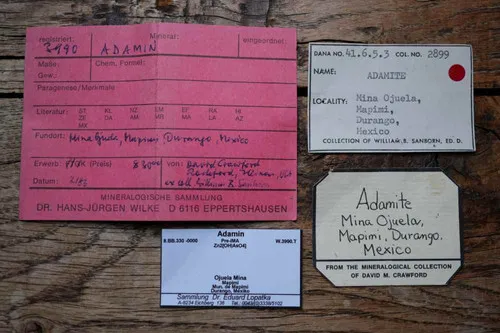 registriert:
3990
Mineral:
ADAMIN
eingeordnet:
Maße:
Gew.:
Chem. Formel:
Paragenese/Merkmale
Literatur:
ST RL NZ SM EF RA HI
ZE DA MK DS MP LA AZ
Fundort: Mina Ojuela, Mapimi, Durango, Mexico
Erwerb: (Preis)
von: David Crawford
Rockford, Illinois, USA
ex coll. William B. Sanborn
Datum:
MINERALOGISCHE SAMMLUNG
DR. HANS-JÜRGEN WILKE D 6116 EPPERTSHAUSEN
DANA NO. 41.6.5.3 COL. NO. 2899
NAME: ADAMITE
LOCALITY: Mina Ojuela,
Mapimi,
Durango,
Mexico
COLLECTION OF WILLIAM B. SANBORN, ED. D.
Adamin
8.BB.330 -0000
Pre-IMA
W.3990.T
Zn2[OH|AsO4]
Ojuela Mina
Mapimi
Mun. de Mapimi
Durango, México
Sammlung Dr. Eduard Lopatka
A-8234 Eichberg 136 Tel.
Adamite
Mina Ojuela,
Mapimi, Durango.
Mexico
FROM THE MINERALOGICAL COLLECTION
OF DAVID M. CRAWFORD